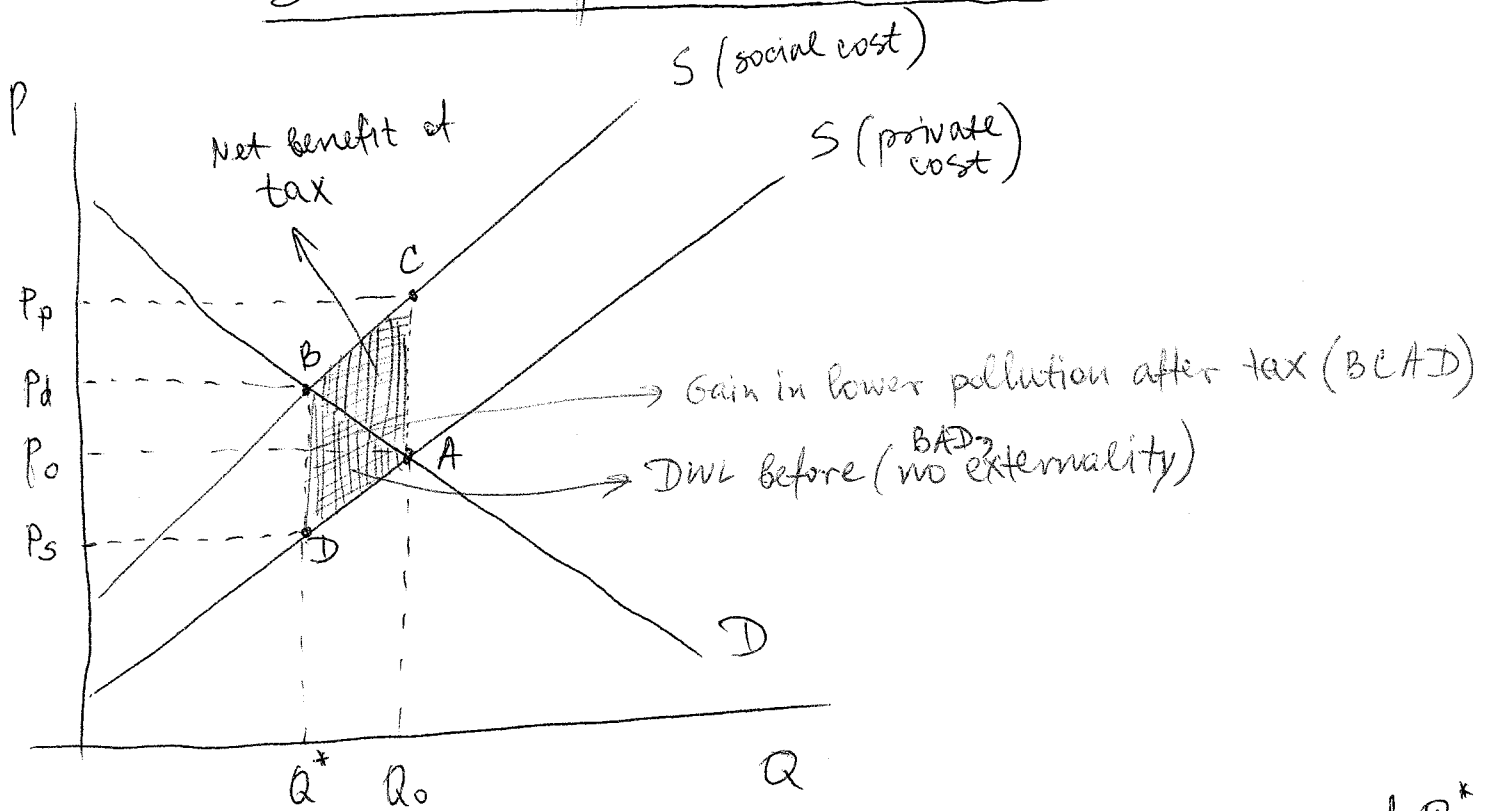 P
S (social cost)
S (private
cost)
Net benefit of
tax
C
Pp
B
Pd
Gain in lower pollution after tax (BCAD)
Po
A
BAD
DWL before (no externality)
Ps
D
D
Q* Qo
Q
Q*